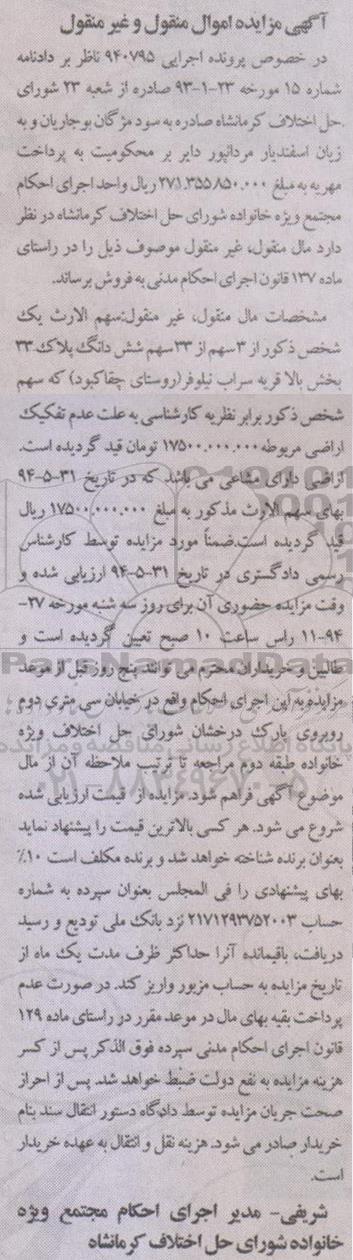 آگهی مزایده اموال منقول و غیر منقول
در خصوص پرونده اجرایی ۹۴۰۷۹۵ ناظر بر دادنامه
شماره ۱۵ مورخه ۲۳-۱-۹۳ صادره از شعبه ۲۳ شورای
حل اختلاف کرمانشاه صادره به سود مژگان بوجاریان و به
زیان اسفندیار مردانپور دایر بر محکومیت به پرداخت
مهریه به مبلغ ۲۷۱.۳۵۵.۸۵۰.۰۰۰ ریال واحد اجرای احکام
مجتمع ویژه خانواده شورای حل اختلاف کرمانشاه در نظر
دارد مال منقول، غیر منقول موصوف ذیل را در راستای
ماده ۱۳۷ قانون اجرای احکام مدنی به فروش برساند.
مشخصات مال منقول، غیر منقول:سهم الارث یک
شخص ذکور از ۳ سهم از ۳۳ سهم شش دانگ پلاک ۳۳
بخش بالا قریه سراب نیلوفر (روستای چقاکبود) که سهم
شخص ذکور برابر نظریه کارشناسی به علت عدم تفکیک
اراضی مربوطه ۱۷۵۰۰.۰۰۰.۰۰۰ تومان قید گردیده است.
اراضی دارای مشاعی می باشد که در تاریخ ۳۱-۵-۹۴
بهای سهم الارث مذکور به مبلغ ۱۷۵۰۰.۰۰۰.۰۰۰ ریال
قید گردیده است.ضمناً مورد مزایده توسط کارشناس
رسمی دادگستری در تاریخ ۳۱-۵-۹۴ ارزیابی شده و
وقت مزایده حضوری آن برای روز سه شنبه مورخه ۲۷-
۱۱-۹۴ راس ساعت ۱۰ صبح تعیین گردیده است و
طالبین و خریداران محترم می توانند پنج روز قبل از موعد
مزایده به این اجرای احکام واقع در خیابان سی متری دوم
روبروی پارک درخشان شورای حل اختلاف ویژه
خانواده طبقه دوم مراجعه تا ترتیب ملاحظه آن از مال
موضوع آگهی فراهم شود. مزایده از قیمت ارزیابی شده
شروع می شود. هر کسی بالاترین قیمت را پیشنهاد نماید
بعنوان برنده شناخته خواهد شد و برنده مکلف است ۱۰٪
بهای پیشنهادی را فی المجلس بعنوان سپرده به شماره
حساب ۲۱۷۱۲۹۳۷۵۲۰۰۳ نزد بانک ملی تودیع و رسید
دریافت، باقیمانده آنرا حداکثر ظرف مدت یک ماه از
تاریخ مزایده به حساب مزبور واریز کند. در صورت عدم
پرداخت بقیه بهای مال در موعد مقرر در راستای ماده ۱۲۹
قانون اجرای احکام مدنی سپرده فوق الذکر پس از کسر
هزینه مزایده به نفع دولت ضبط خواهد شد. پس از احراز
صحت جریان مزایده توسط دادگاه دستور انتقال سند بنام
خریدار صادر می شود. هزینه نقل و انتقال به عهده خریدار
است.
شریفی- مدیر اجرای احکام مجتمع ویژه
خانواده شورای حل اختلاف کرمانشاه
ParsNamadData
پایگاه اطلاع رسانی مناقصه و مزایده
۰۲۱-۸۸۳۴۹۶۷۰-۵